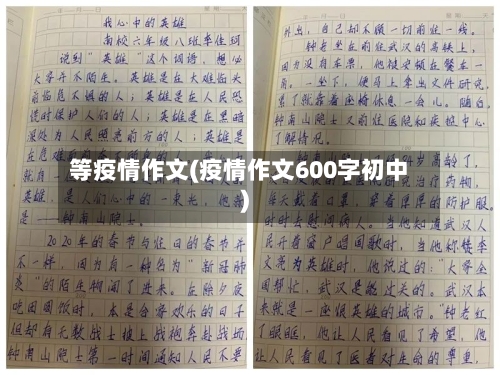 我心中的英雄
南校六年级八班李佳珂
说到“英雄”这个词语，想必
大家并不陌生。英雄是在大难临头
前临危不惧的人；英雄是在人民恐
慌时保护人们的人；英雄是在黑暗
深处为人民照亮前方的人；英雄是
在危难
就自
英雄，是人们心中的一束光，他就
是——钟南山院士。
2020年的春节与往日的春节并
不一样，因为有一种名为“新冠肺
炎”的陌生物闯了进来。在除夕夜
吃团圆饭时，本是合家欢乐的日子
但却有无数战士披上战袍奔赴战场
钟南山院士第一时间通知人民不要
外出，自己却不顾一切前往一线。
钟老坐在前往武汉的高铁上，
因为没有车票，他被安顿在餐车一
角。一坐下，便马上拿出文件研究，
累了就靠着座椅休息一会儿。随后，
钟南山院士又前往医院和疾控中心
了解情况。
84岁高龄了，
治疗药物，
每天戴着口罩，穿着厚厚的防护服，
时时去慰问病人。当他知道武汉人
民开着窗户唱国歌时，当他称矮李
文亮为英雄时，他说过的：“大家全
国帮忙，武汉是能过关的。武汉本
来就是一座很英雄的城市。”钟老红
了眼眶，他让人民看见了希望，他
让人民看见了医者对生命的尊重，
等疫情作文(疫情作文600字初中
)